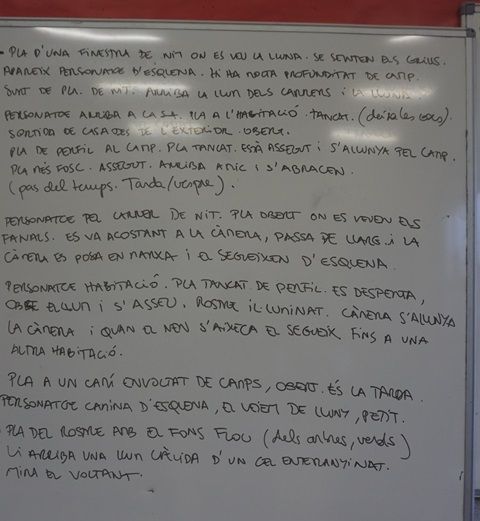 - PLA D'UNA FINESTRA DE NIT ON ES VEU LA LLUNA. SE SENTEN ELS GRILLS.
APAREIX PERSONATGE D'ESQUENA. HI HA MOLTA PROFUNDITAT DE CAMP.
SURT DE PLA. DE NIT. ARRIBA LA LLUM DELS CARRERS I LA LLUNA.
PERSONATGE ARRIBA A CASA. PLA A L'HABITACIÓ. TANCAT. (deixa les coses).
SORTIDA DE CASA DES DE L'EXTERIOR. OBERT.
PLA DE PERFIL AL CAMP. PLA TANCAT. ESTÀ ASSEGUT I S'ALLUNYA PEL CAMP.
PLA MÉS FOSC. ASSEGUT. ARRIBA AMIC I S'ABRACEN.
(pas del temps. Tarda/vespre).
PERSONATGE PEL CARRER DE NIT. PLA OBERT ON ES VEUEN ELS
FANALS. ES VA ACOSTANT A LA CÀMERA, PASSA DE LLARG I LA
CÀMERA ES POSA EN MARXA I EL SEGUEIXEN D'ESQUENA.
PERSONATGE HABITACIÓ. PLA TANCAT DE PERFIL. ES DESPERTA,
OBRE EL LLUM I S'ASSEU. ROSTRE IL·LUMINAT. CÀMERA S'ALLUNYA
LA CÀMERA I QUAN EL NEN S'AIXECA EL SEGUEIX FINS A UNA
ALTRA HABITACIÓ.
PLA A UN CAMÍ ENVOLTAT DE CAMPS, OBERT. ÉS LA TARDA.
PERSONATGE CAMINA D'ESQUENA, EL VEIEM DE LLUNY, PETIT.
- PLA DEL ROSTRE AMB EL FONS FLOU (dels arbres, verds)
LI ARRIBA UNA LLUM CÀLIDA D'UN CEL ENTERANYINAT.
MIRA EL VOLTANT.